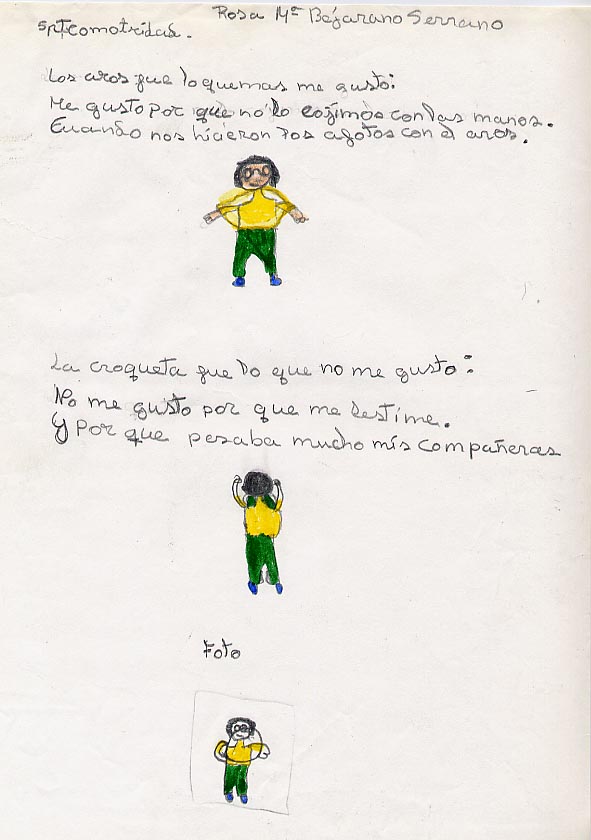 Rosa Mª Bejarano Serrano
spicomotridad.
Los aros fue lo quemas me gusto:
Me gusto por que no lo cojimos con las manos.
Cuando nos hicieron los con el aros.
La croqueta fue lo que no me gusto:
No me gusto por que me lestime.
Y Por que pesaba mucho mis compañeras
Foto